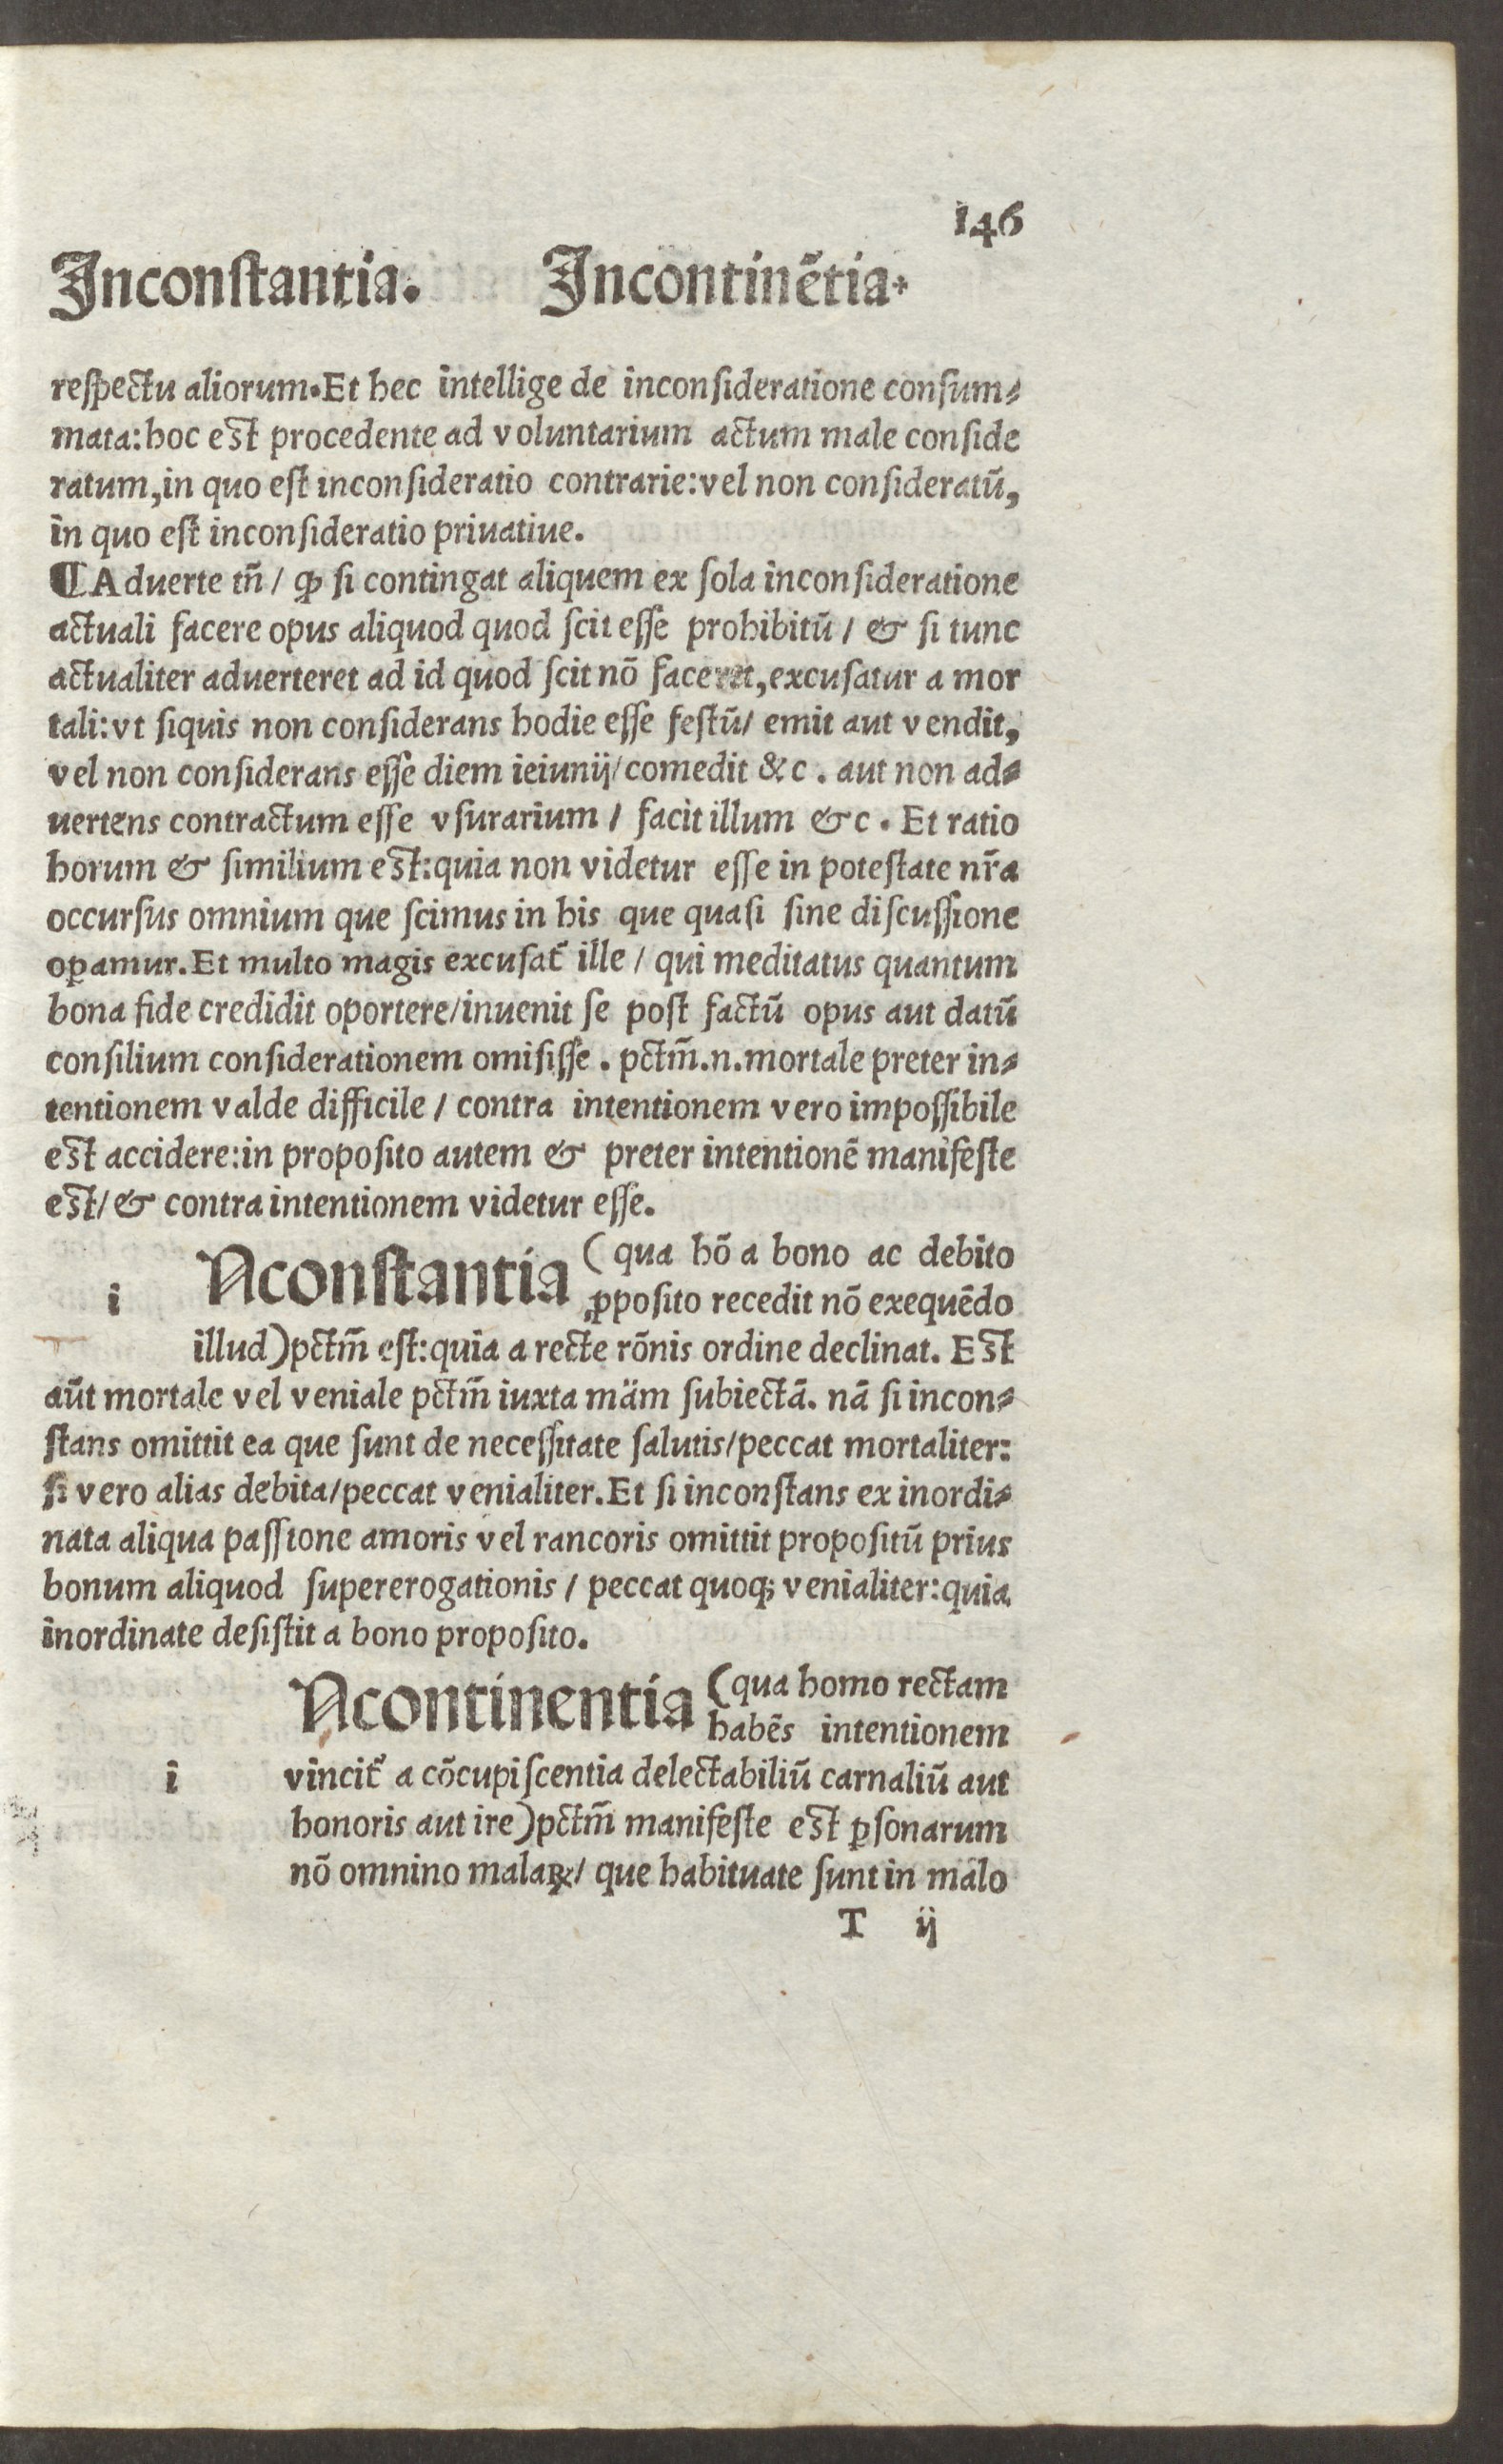 146
Inconstantia. Incontinētia.
respectu aliorum. Et hec intellige de inconsideratione consum⸗
mata: hoc est procedente ad voluntarium actum male conside
ratum, in quo est inconsideratio contrarie: vel non consideratū,
in quo est inconsideratio priuatiue.
¶ Aduerte tn̄ / ꝙ si contingat aliquem ex sola inconsideratione
actuali facere opus aliquod quod scit esse prohibitū / & si tunc
actualiter aduerteret ad id quod scit nō faceret, excusatur a mor
tali: vt siquis non considerans hodie esse festū / emit aut vendit,
vel non considerans esse diem ieiunij / comedit &c. aut non ad⸗
uertens contractum esse vsurarium / facit illum &c. Et ratio
horum & similium est: quia non videtur esse in potestate nr̄a
occursus omnium que scimus in his que quasi sine discussione
oꝑamur. Et multo magis excusat᷑ ille / qui meditatus quantum
bona fide credidit oportere / inuenit se post factū opus aut datū
consilium considerationem omisisse. pctm̄.n.mortale preter in⸗
tentionem valde difficile / contra intentionem vero impossibile
est accidere: in proposito autem & preter intentionē manifeste
est / & contra intentionem videtur esse.
Nconstantia (qua hō a bono ac debito
i ꝓposito recedit nō exequēdo
illud) pctm̄ est: quia a recte rōnis ordine declinat. Est
aūt mortale vel veniale pctm̄ iuxta mām subiectā. nā si incon⸗
stans omittit ea que sunt de necessitate salutis / peccat mortaliter:
si vero alias debita / peccat venialiter. Et si inconstans ex inordi⸗
nata aliqua passione amoris vel rancoris omittit propositū prius
bonum aliquod supererogationis / peccat quoqꝫ venialiter: quia
inordinate desistit a bono proposito.
Ncontinentia (qua homo rectam
habēs intentionem
i vincit᷑ a cōcupiscentia delectabiliū carnaliū aut
honoris aut ire) pctm̄ manifeste est ꝑsonarum
nō omnino malaꝝ / que habituate sunt in malo
T ij